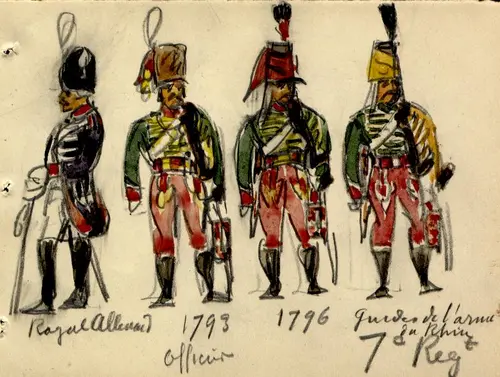 Royal Allemand
1793
Officier
1796
Guides de l'armée
du Rhin
7e Regt